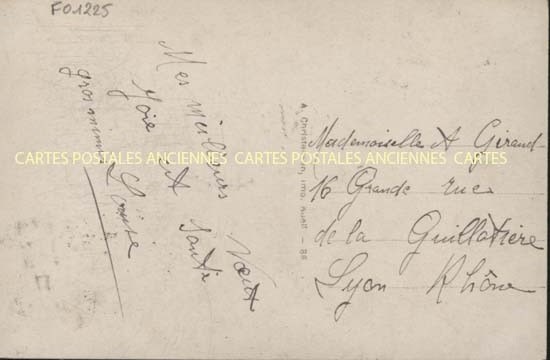 F01225
Mes meilleurs Vœux
Joie et Santé
Louise
Mademoiselle A Giraud
16 Grande rue
de la Guillotière
Lyon Rhône
CARTES POSTALES ANCIENNES CARTES POSTALES ANCIENNES CARTES